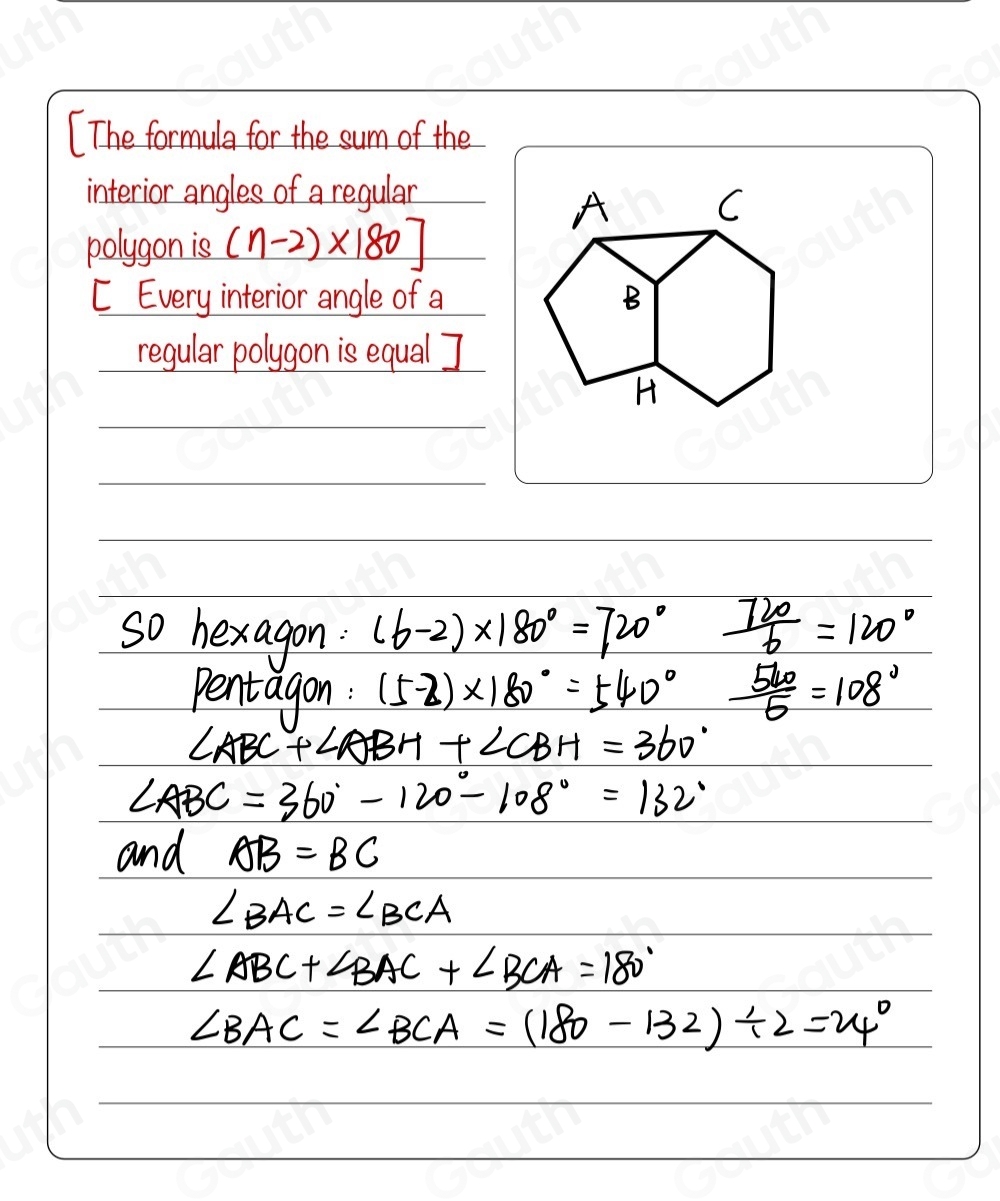 [The formula for the sum of the
interior angles of a regular
polygon is (n-2)×180]
[ Every interior angle of a
regular polygon is equal ]
A
C
B
H
so hexagon: (6-2)×180° = 720° 720/6 = 120°
Pentagon: (5-2)×180° = 540° 540/5 = 108°
∠ABC + ∠ABH + ∠CBH = 360°
∠ABC = 360° - 120° - 108° = 132°
and AB = BC
∠BAC = ∠BCA
∠ABC + ∠BAC + ∠BCA = 180°
∠BAC = ∠BCA = (180 - 132) ÷ 2 = 24°
Gauth